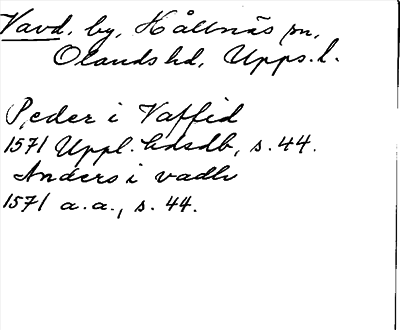 Vavd. by, Hållnäs sn,
Olands hd, Upps. l.
Peder i Vaffid
1571 Uppl. hdsdb, s. 44.
Anders i vadh
1571 a. a., s. 44.